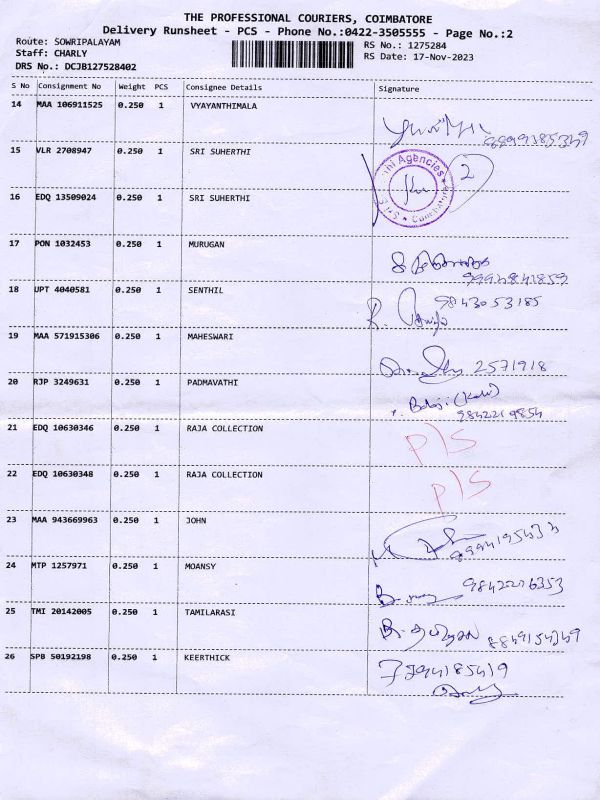 THE PROFESSIONAL COURIERS, COIMBATORE
Delivery Runsheet - PCS - Phone No.:0422-3505555 - Page No.:2
Route: SOWRIPALAYAM RS No.: 1275284
Staff: CHARLY RS Date: 17-Nov-2023
DRS No.: DCJB127528402
S No Consignment No Weight PCS Consignee Details Signature
14 MAA 106911525 0.250 1 VYAYANTHIMALA
15 VLR 2708947 0.250 1 SRI SUHERTHI
thi Agencies 2
Coimbatore
16 EDQ 13509024 0.250 1 SRI SUHERTHI
17 PON 1032453 0.250 1 MURUGAN
18 UPT 4040581 0.250 1 SENTHIL 9843053185
19 MAA 571915306 0.250 1 MAHESWARI 2571918
20 RJP 3249631 0.250 1 PADMAVATHI
Balaji 9842219854
21 EDQ 10630346 0.250 1 RAJA COLLECTION P/S
22 EDQ 10630348 0.250 1 RAJA COLLECTION P/S
23 MAA 943669963 0.250 1 JOHN
24 MTP 1257971 0.250 1 MOANSY
25 TMI 20142005 0.250 1 TAMILARASI
26 SPB 50192198 0.250 1 KEERTHICK